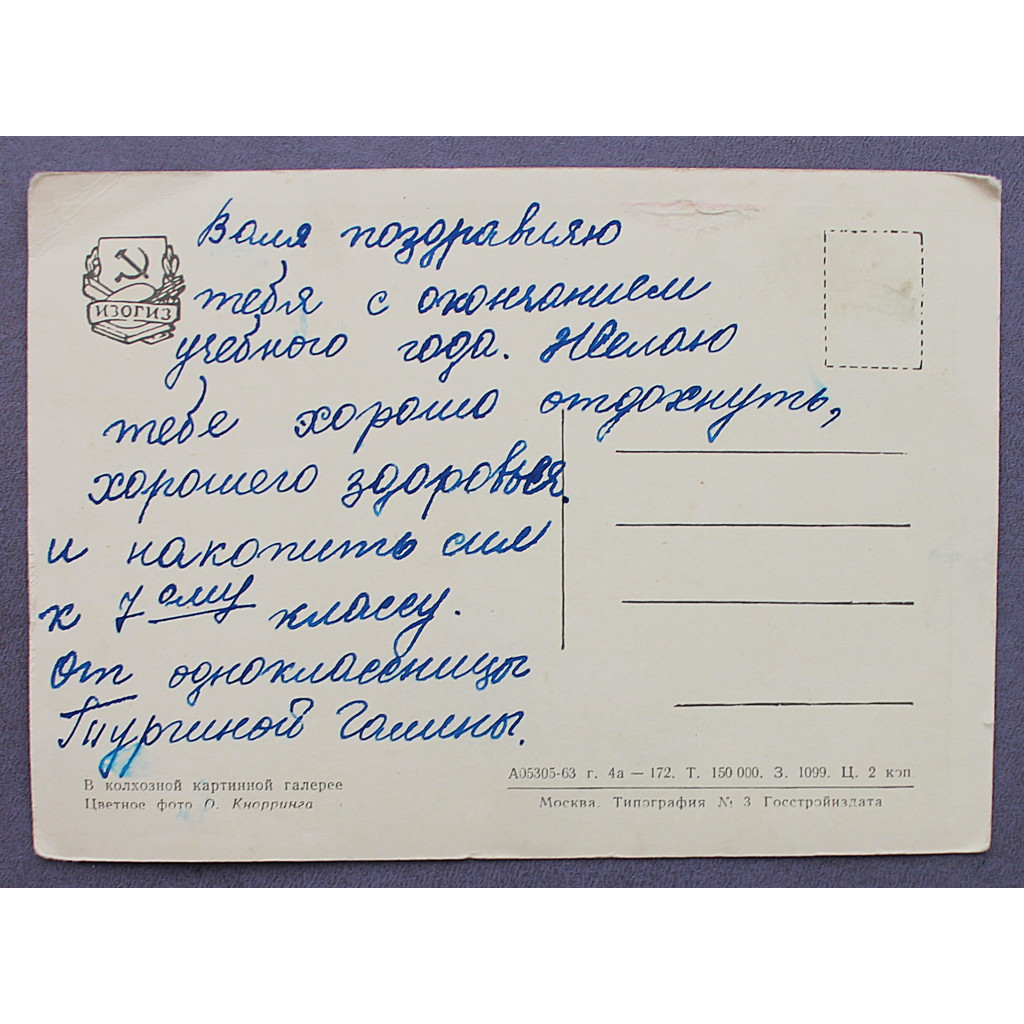 Валя поздравляю
тебя с окончанием
учебного года. Желаю
тебе хорошо отдохнуть,
хорошего здоровья.
и накопить сил
к 7ому классу.
От одноклассницы
Галины.
ИЗОГИЗ
В колхозной картинной галерее
Цветное фото О. Кнорринга
А05305-63 г. 4а — 172. Т. 150 000. З. 1099. Ц. 2 коп.
Москва. Типография № 3 Госстройиздата